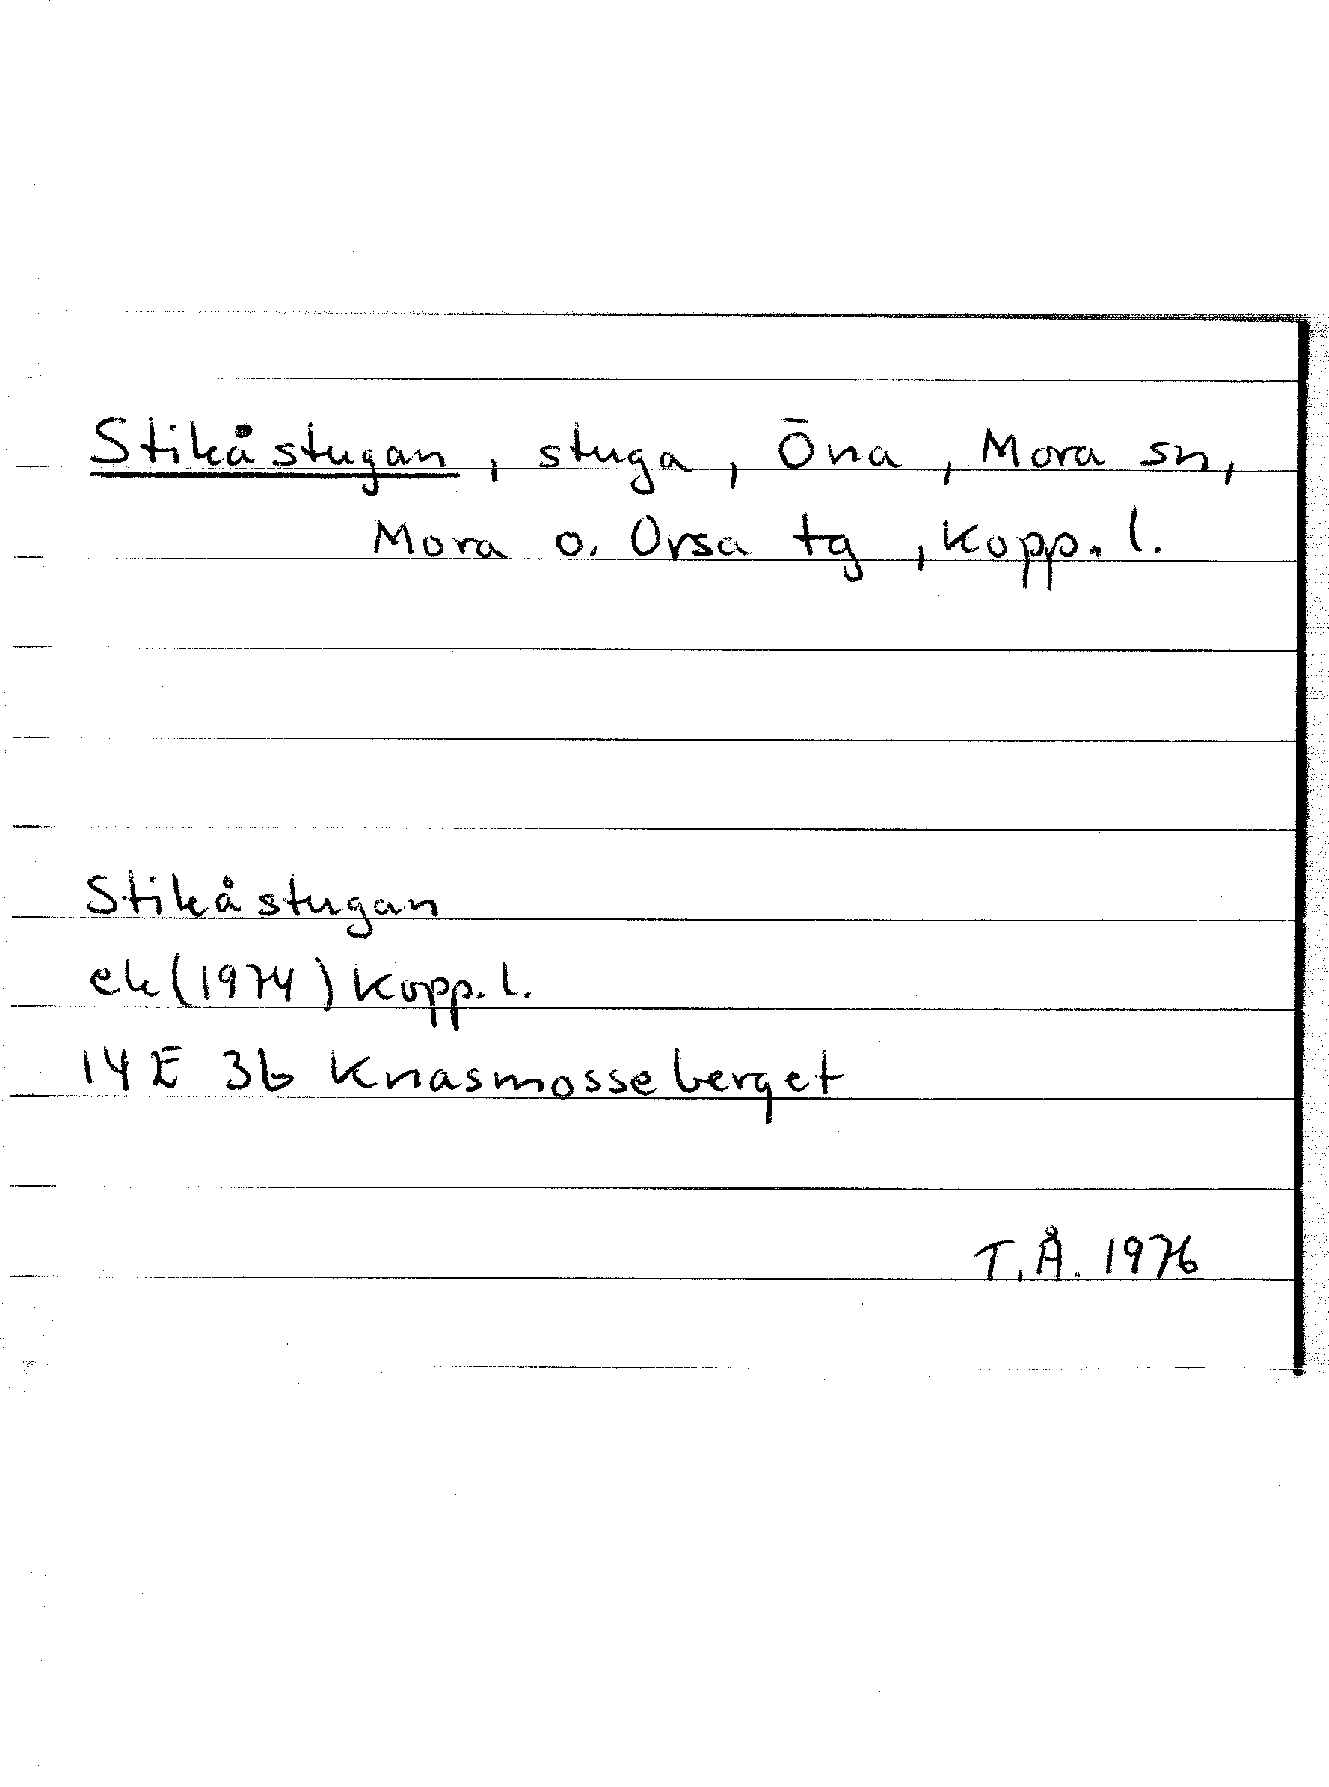 Stikåstugan, stuga, Öna, Mora sn,
Mora o. Orsa tg, Kopp. l.
Stikåstugan
ek (1974) Kopp. l.
14E 3b Knasmosseberget
T.Å. 1976